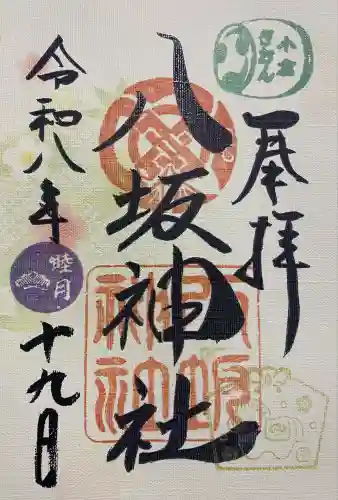 奉拝
八坂神社
令和八年
睦月
十九日
八坂
神社